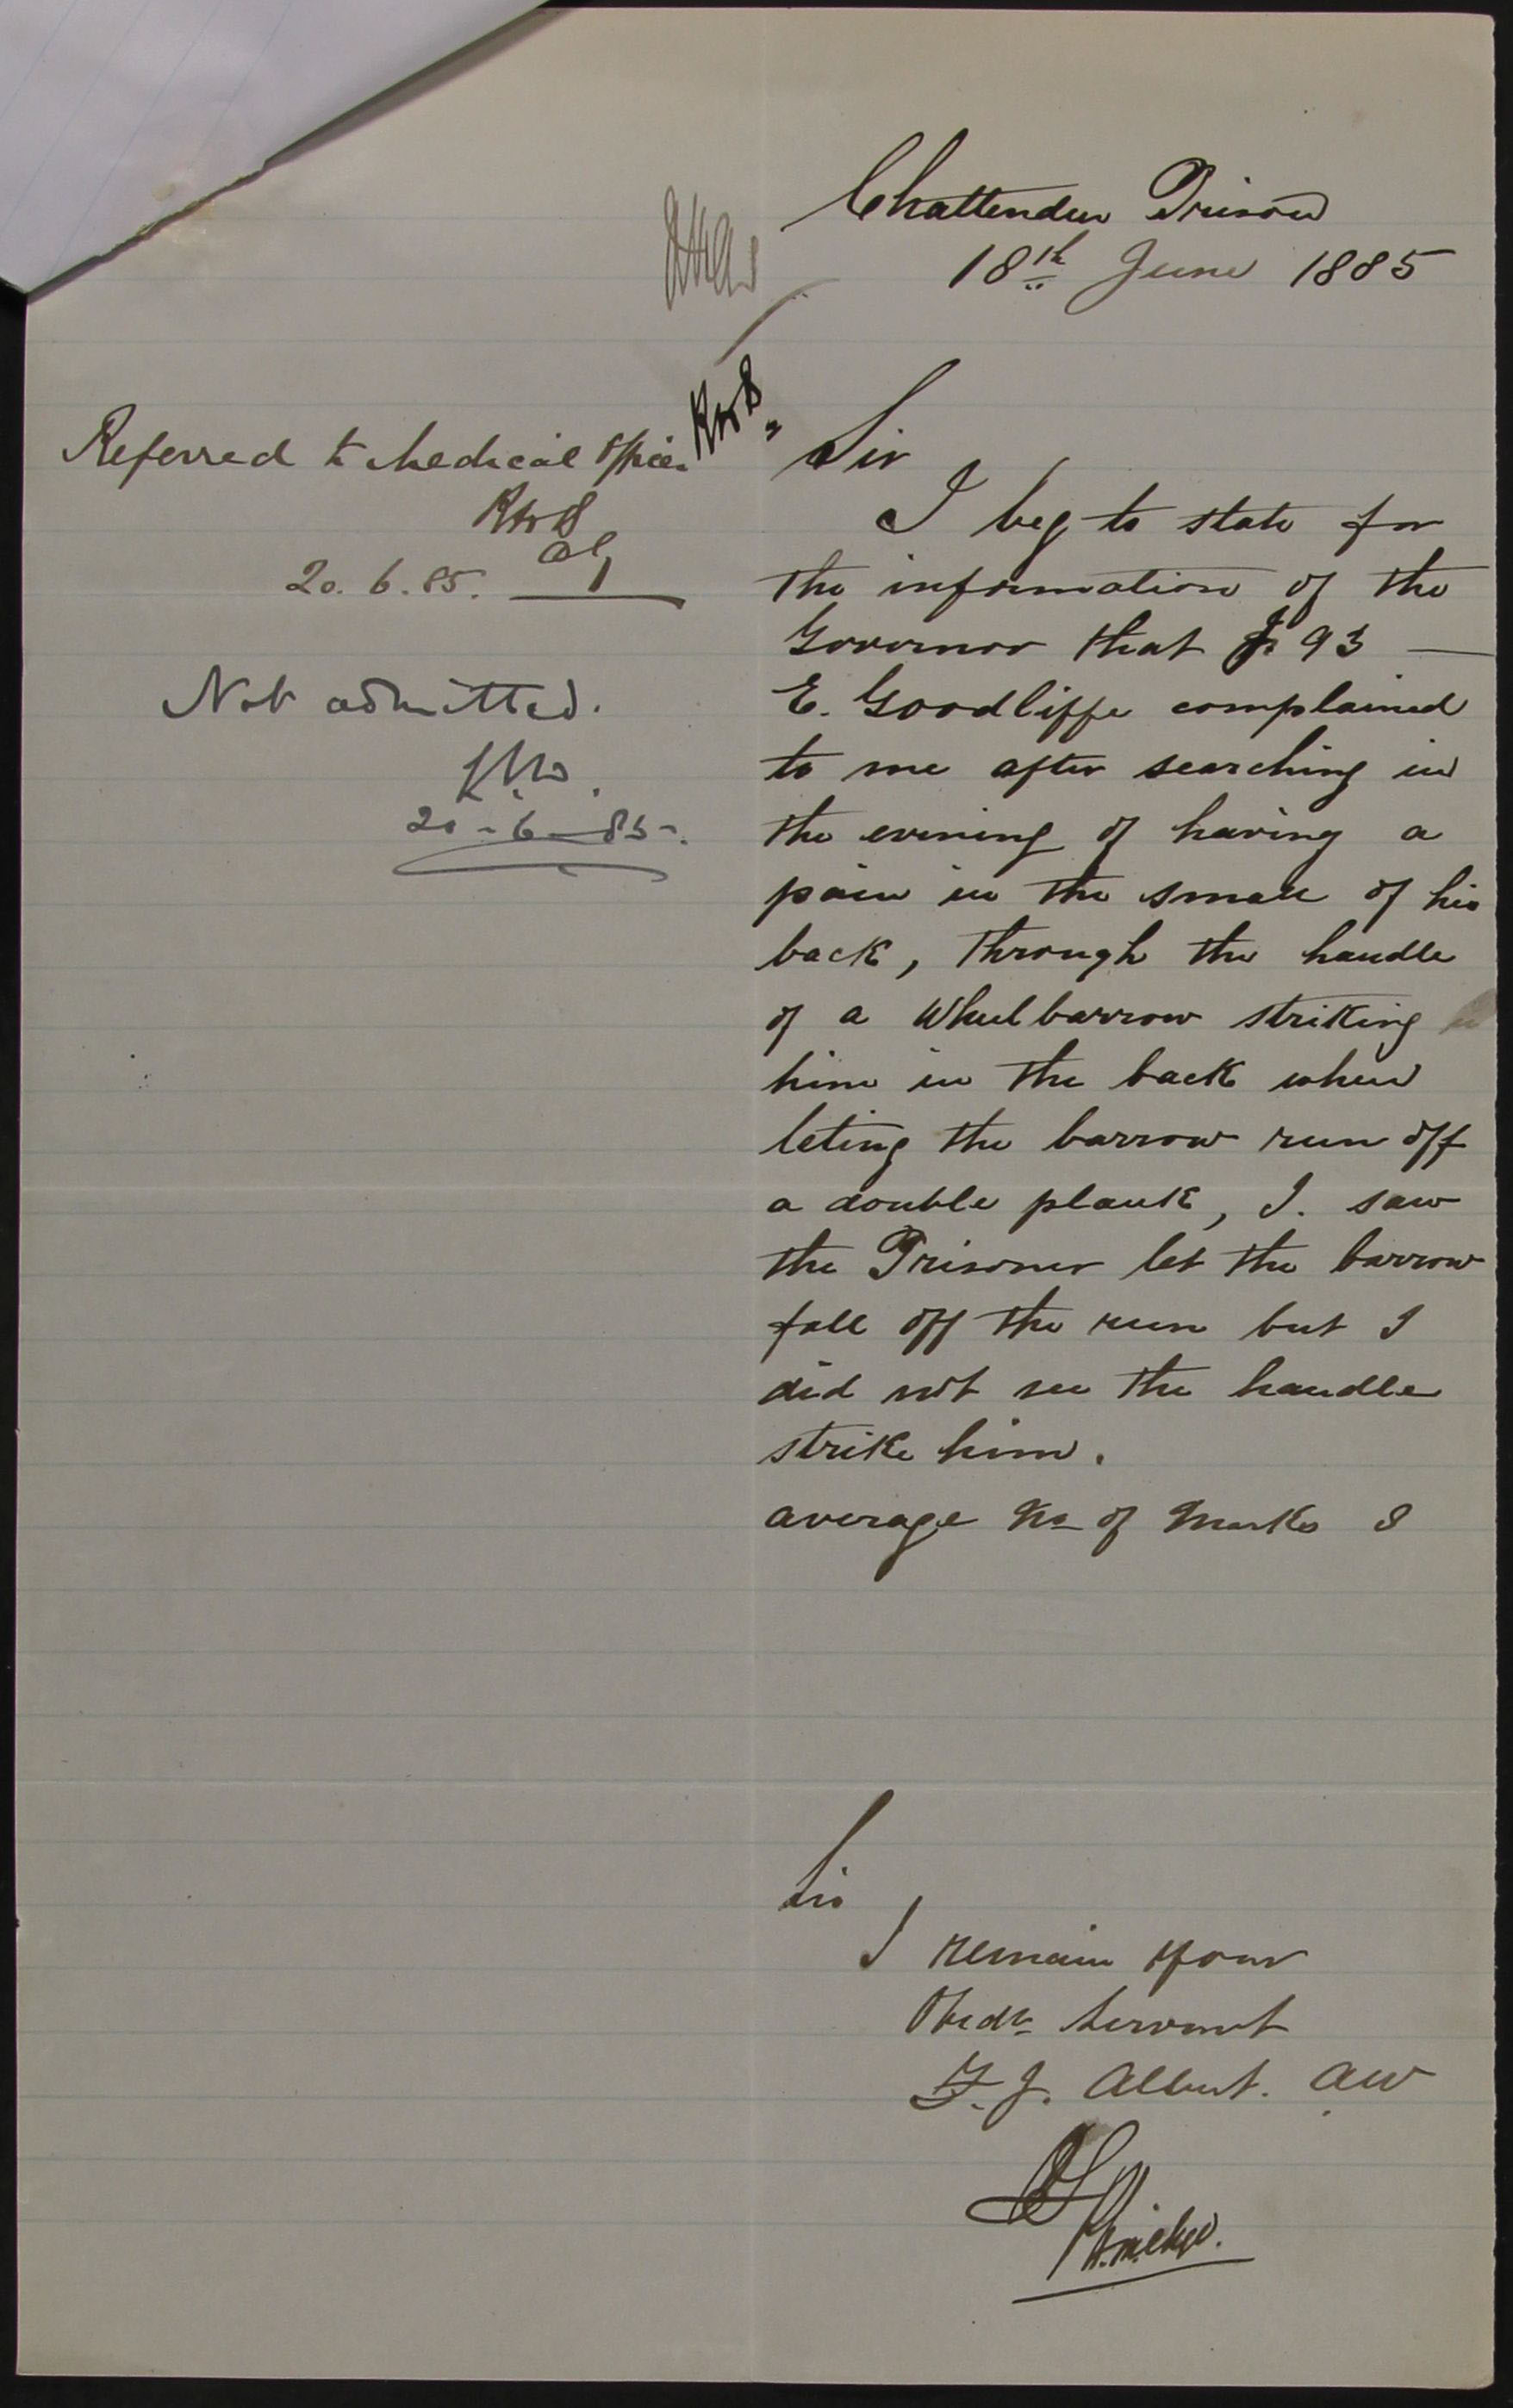 Chattenden Prison
18th June 1885
Referred to Medical Officer
RWB
20.6.85.
Not admitted.
20-6-85-.
Sir
I beg to state for
the information of the
Governor that J 93 —
E. Goodliffe complained
to me after searching in
the evening of having a
pain in the small of his
back, through the handle
of a wheelbarrow striking
him in the back when
leting the barrow run off
a double plank, I. saw
the Prisoner let the barrow
fall off the run but I
did not see the handle
strike him.
average No of Marks 8
Sir
I remain your
Obedt Servant
F. J. Albert. AW